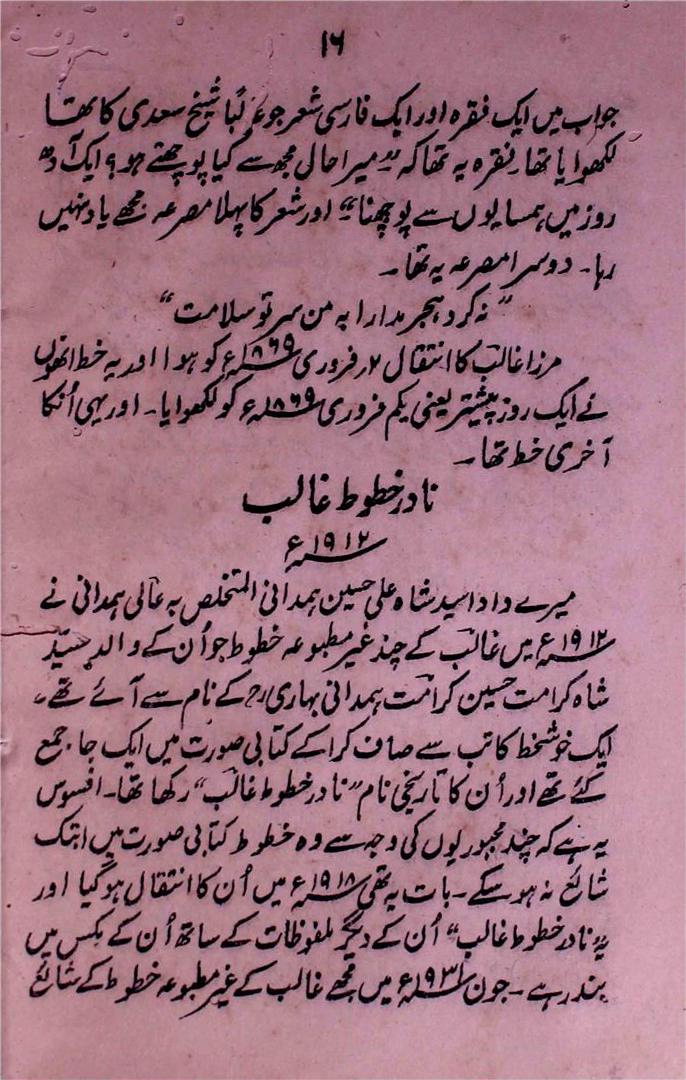 ۱۶
جواب میں ایک فقرہ اور ایک فارسی شعر جو غالبًا شیخ سعدی کا تھا
لکھوایا تھا۔ فقرہ یہ تھا کہ "میرا حال مجھ سے کیا پوچھتے ہو؟ ایک آدھ
روز میں ہمسایوں سے پوچھنا" اور شعر کا پہلا مصرعہ مجھے یاد نہیں
رہا۔ دوسرا مصرعہ یہ تھا۔
"نہ کرد ہجر مدارا بہ من سر تو سلامت"
مرزا غالبؔ کا انتقال ۲ر فروری ۱۸۶۹ء کو ہوا اور یہ خط انھوں
نے ایک روز پیشتر یعنی یکم فروری ۱۸۶۹ء کو لکھوایا۔ اور یہی اُنکا
آخری خط تھا۔
نادر خطوط غالب
۱۹۱۲ء
میرے دادا سید شاہ علی حسین ہمدانی المتخلص بہ عالی ہمدانی نے
۱۹۱۲ء میں غالبؔ کے چند غیر مطبوعہ خطوط جو اُن کے والد سیّد
شاہ کرامت حسین کرامتؔ ہمدانی بہاری رح کے نام سے آئے تھے۔
ایک خوشخط کاتب سے صاف کرا کے کتابی صورت میں ایک جا جمع
کئے تھے اور اُن کا تاریخی نام "نادر خطوط غالبؔ" رکھا تھا۔ افسوس
یہ ہے کہ چند مجبوریوں کی وجہ سے وہ خطوط کتابی صورت میں ابتک
شائع نہ ہو سکے۔ بات یہ تھی ۱۹۱۸ء میں اُن کا انتقال ہو گیا اور
"نادر خطوط غالب" اُن کے دیگر ملفوظات کے ساتھ اُن کے بکس میں
بند رہے۔ جون ۱۹۳۱ء میں مجھے غالب کے غیر مطبوعہ خطوط کے شائع